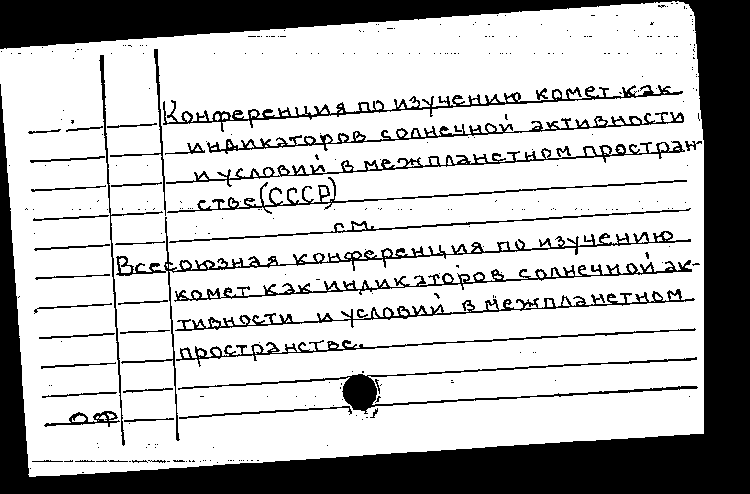 Конференция по изучению комет как
индикаторов солнечной активности
и условий в межпланетном простран-
стве (СССР)
см.
Всесоюзная конференция по изучению
комет как индикаторов солнечной ак-
тивности и условий в межпланетном
пространстве.
ОФ